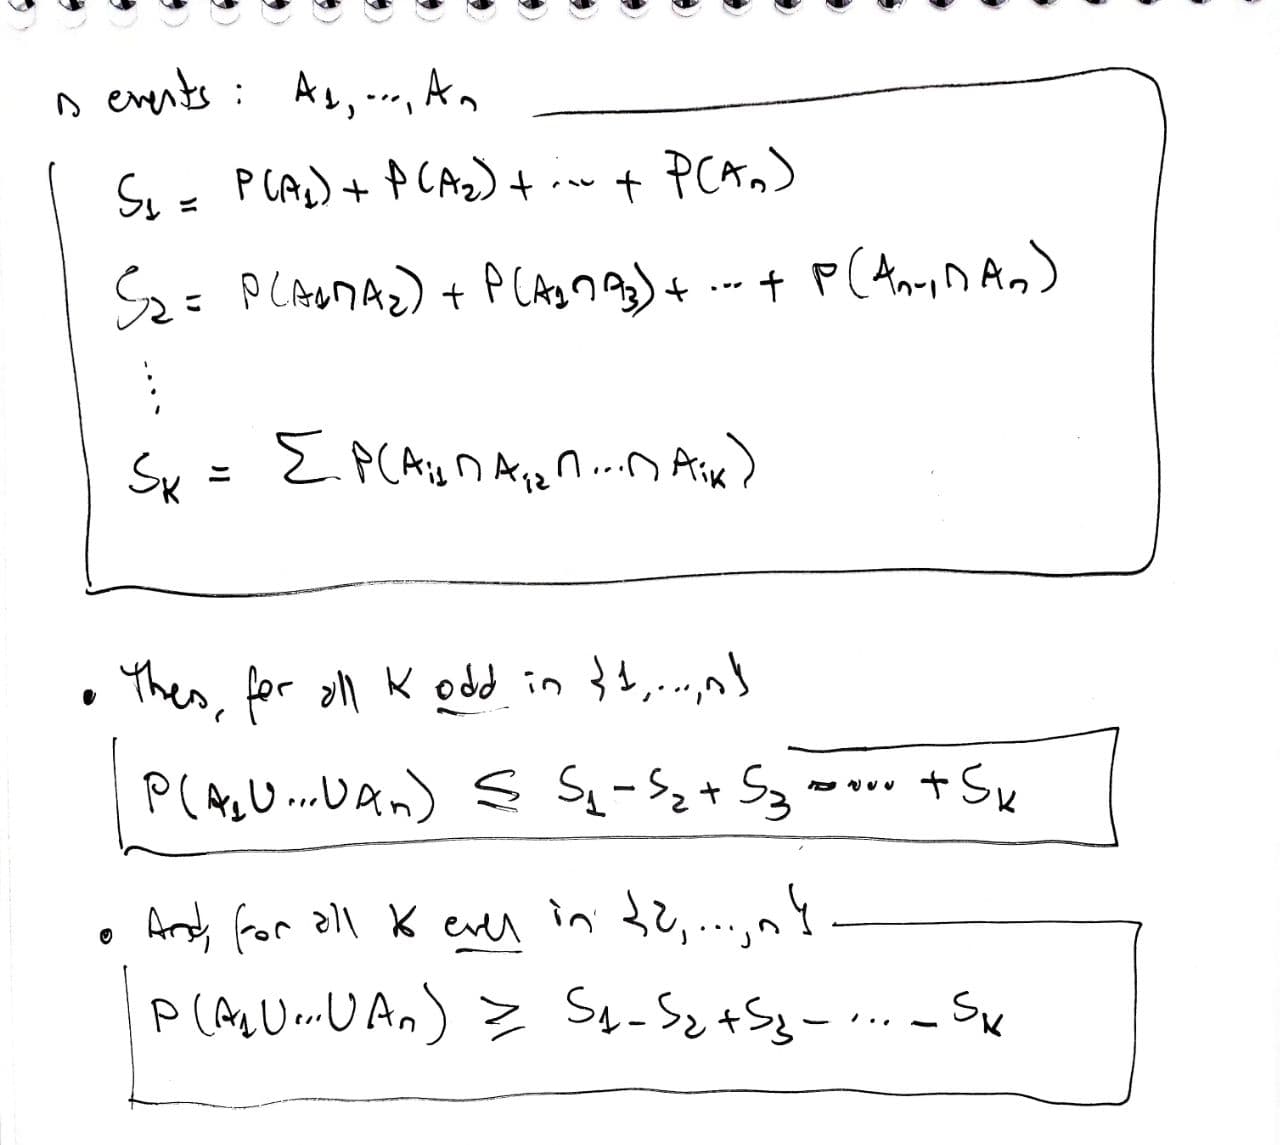 n events: A₁, ..., Aₙ
S₁ = P(A₁) + P(A₂) + ... + P(Aₙ)
S₂ = P(A₁∩A₂) + P(A₁∩A₃) + ... + P(Aₙ₋₁∩Aₙ)
⋮
Sₖ = ∑ P(Aᵢ₁∩Aᵢ₂∩...∩Aᵢₖ)
• Then, for all K odd in {1,...,n}
P(A₁∪...∪Aₙ) ≤ S₁ - S₂ + S₃ - ... + Sₖ
• And, for all K even in {2,...,n}
P(A₁∪...∪Aₙ) ≥ S₁ - S₂ + S₃ - ... - Sₖ